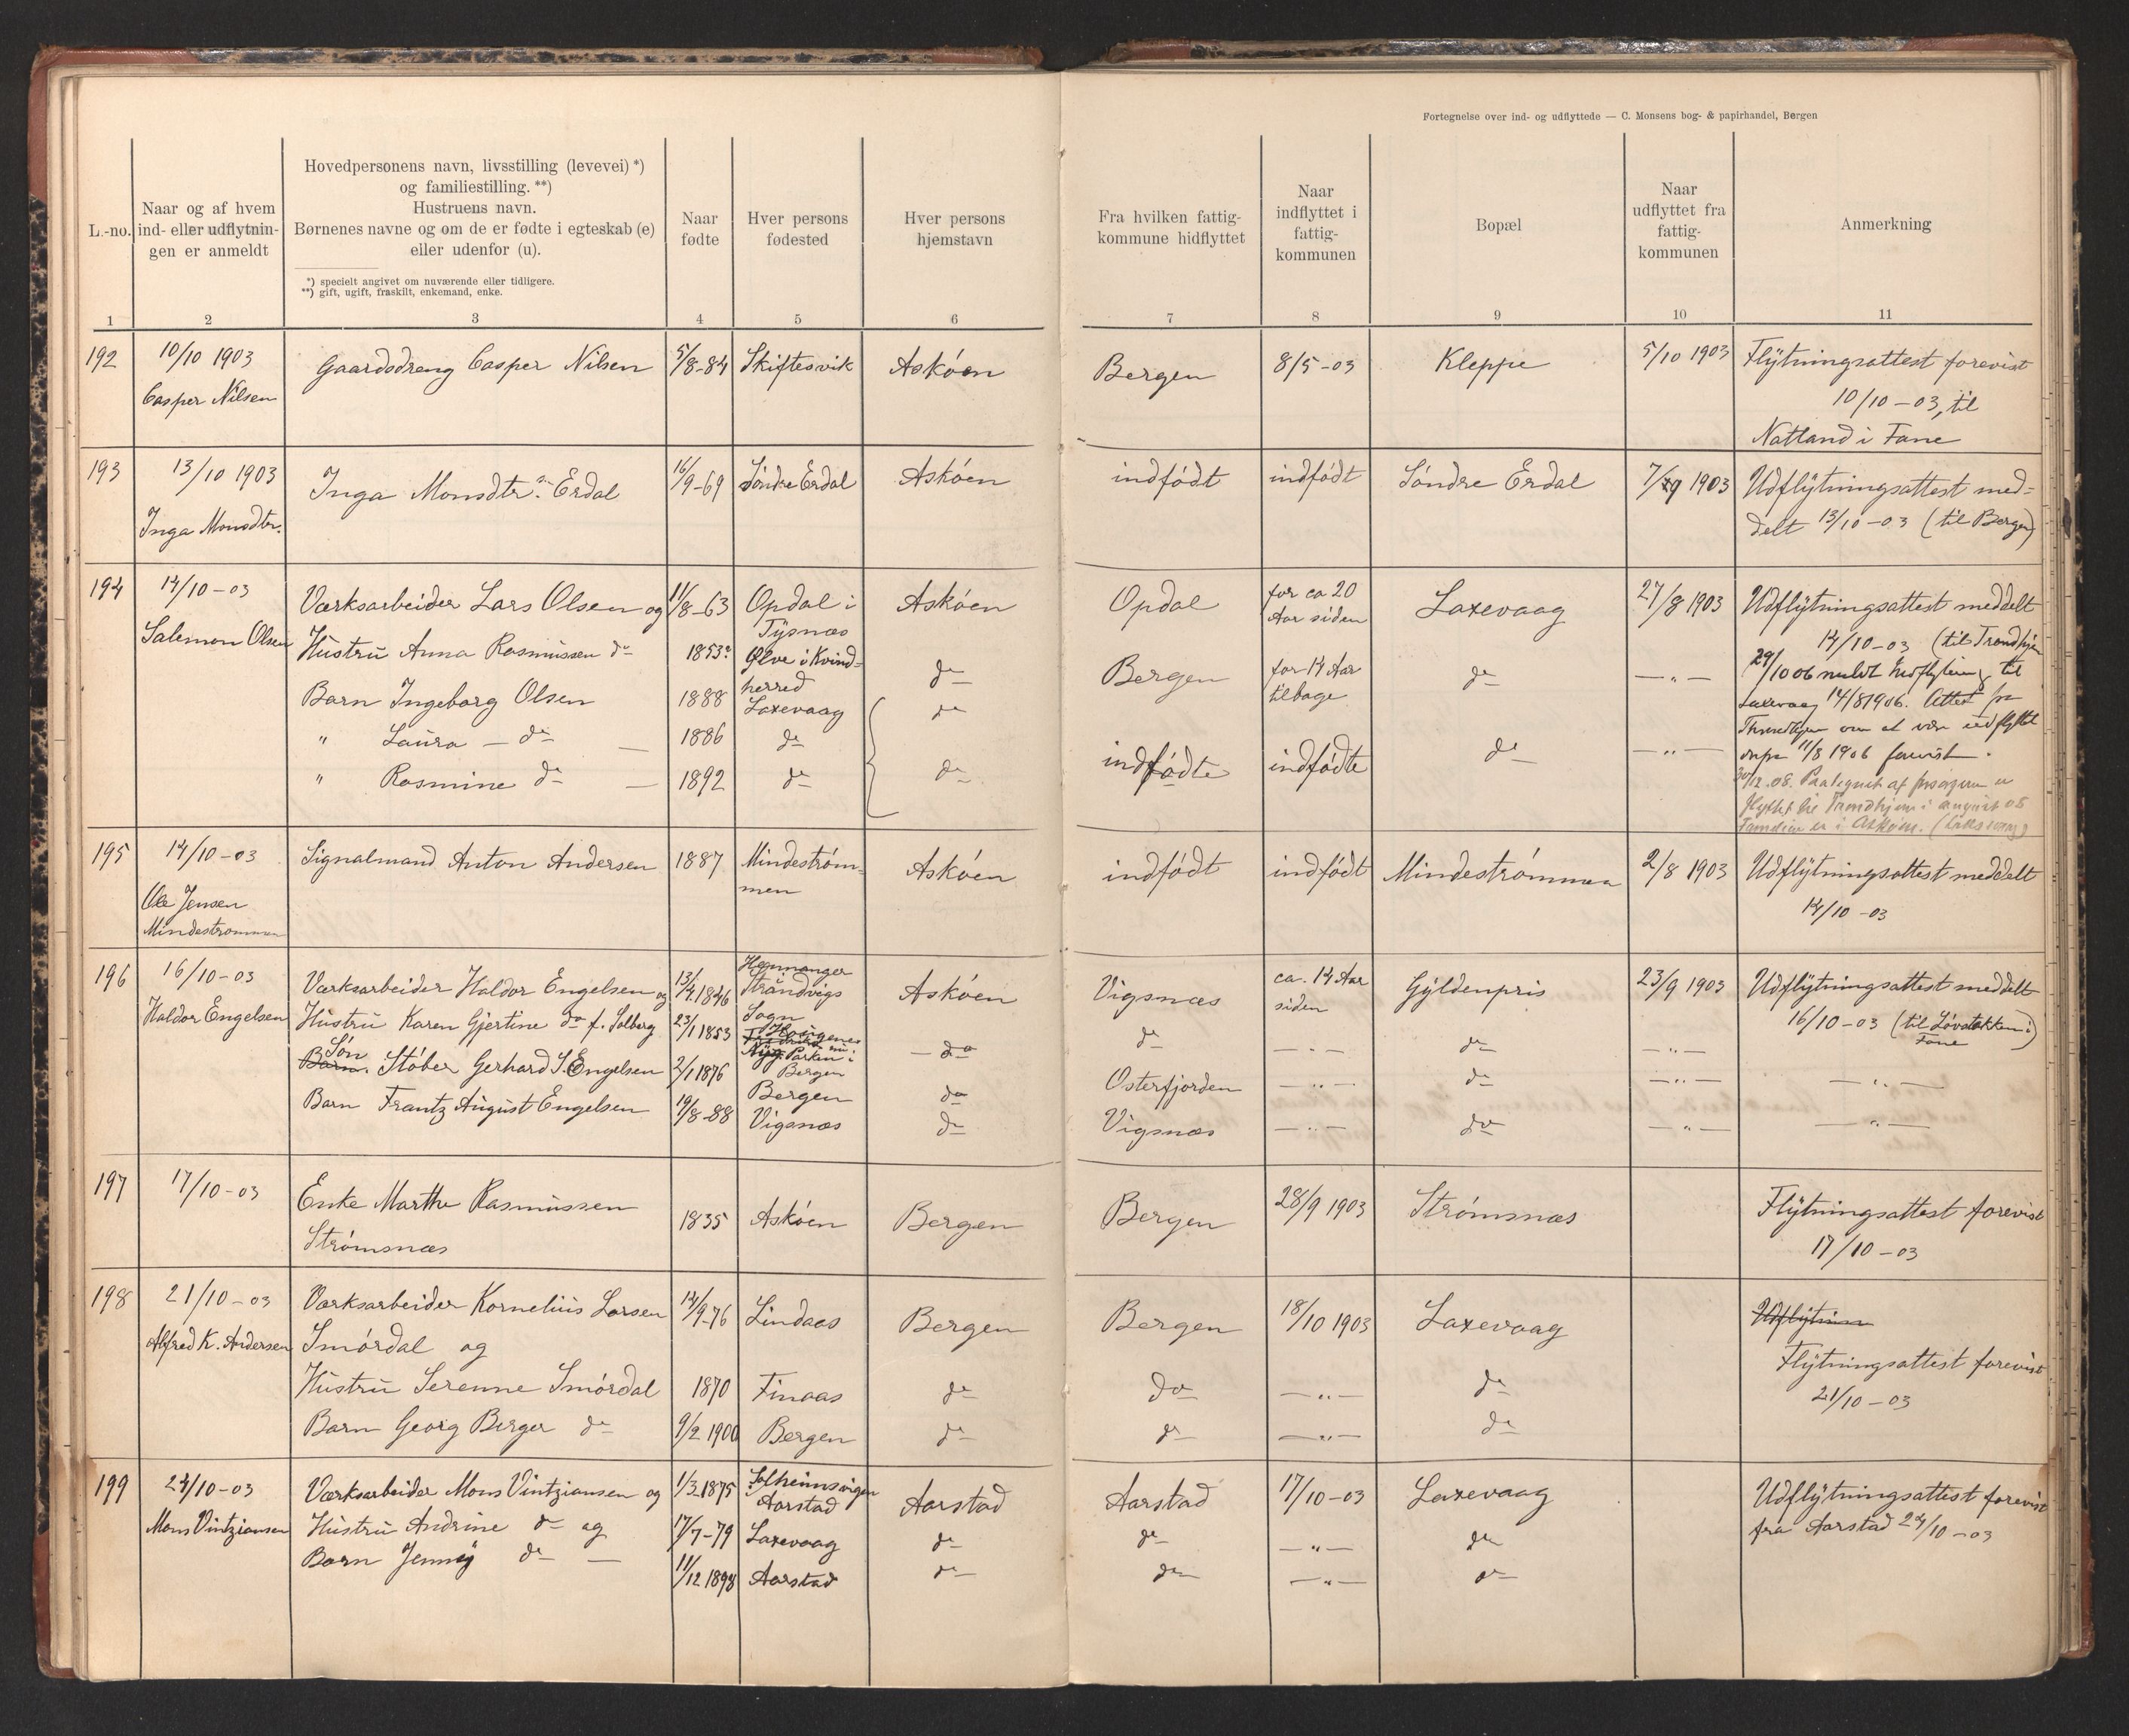 Fortegnelse over ind- og udflyttede — C. Monsens bog- & papirhandel, Bergen
L.-no.
Naar og af hvem
ind- eller udflytnin-
gen er anmeldt
Hovedpersonens navn, livsstilling (levevei) *)
og familiestilling. **)
Hustruens navn.
Børnenes navne og om de er fødte i egteskab (e)
eller udenfor (u).
*) specielt angivet om nuværende eller tidligere.
**) gift, ugift, fraskilt, enkemand, enke.
Naar
fødte
Hver persons
fødested
Hver persons
hjemstavn
Fra hvilken fattig-
kommune hidflyttet
Naar
indflyttet i
fattig-
kommunen
Bopæl
Naar
udflyttet fra
fattig-
kommunen
Anmerkning
1 2 3 4 5 6 7 8 9 10 11
192 10/10 1903 Gaardsdreng Casper Nilsen 5/8-84 Skiftesvik Askøen Bergen 8/5-03 Kleppe 5/10 1903 Flytningsattest forevist
Casper Nilsen 10/10-03, til
Natland i Fane
193 13/10 1903 Inga Monsdtr. Erdal 16/9-69 Søndre Erdal Askøen indfødt indfødt Søndre Erdal 7/9 1903 Udflytningsattest med-
Inga Monsdtr. delt 13/10-03 (til Bergen)
194 14/10-03 Værksarbeider Lars Olsen og 11/8-63 Opdal i Askøen Opdal for ca 20 Laxevaag 27/8 1903 Udflytningsattest meddelt
Tysnæs Aar siden 14/10-03 (til Trondhjem
Salemon Olsen Hustru Anna Rasmussen do 1853? Ølve i Kvind- do Bergen for 14 Aar do — " —
herred tilbage
29/10 06 meldt Indflytning til
Barn Ingeborg Olsen 1888 Laxevaag do
Laxevaag 14/8 1906. Attest fra
" Laura — do — 1886 do indfødte indfødte do — " —
Trondhjem om at være udflyttet
" Rasmine do — 1892 do do
11/8 1906 forevist.
30/12.08.
flyttet til Trondhjem i august 08
Familien er i Askøen. (Laksevaag)
195 14/10-03 Signalmand Anton Andersen 1887 Mindestrøm- Askøen indfødt indfødt Mindestrømmen 2/8 1903 Udflytningsattest meddelt
men 14/10-03
Ole Jensen
Mindestrømmen
196 16/10-03 Værksarbeider Haldor Engelsen og 13/4 1846 Strandvigs Askøen Vigsnæs ca. 14 Aar Gyldenpris 23/9 1903 Udflytningsattest meddelt
siden 16/10-03 (til Løvstakken i
Fane)
Haldor Engelsen Hustru Karen Gjertine do f. Solberg 23/1 1853 Sogn — do do — " — do — " —
Nyg. Parken i
Bergen
Barn. Søn Støber Gerhard S. Engelsen 2/1 1876 Bergen do Osterfjorden — " — do — " — — " —
Barn Frantz August Engelsen 19/8-88 Vigsnæs do Vigsnæs — " — do — " — — " —
197 17/10-03 Enke Marthe Rasmussen 1835 Askøen Bergen Bergen 28/9 1903 Strømsnæs Flytningsattest forevist
Strømsnæs 17/10-03
198 21/10-03 Værksarbeider Kornelius Larsen 14/9-76 Lindaas Bergen Bergen 18/10 1903 Laxevaag Udflytnin
Alfred K. Andersen Smørdal og Flytningsattest forevist
Hustru Serenne Smørdal 1870 Finaas do do — " — do 21/10-03
Barn Georg Berger do 9/2 1900 Bergen do do — " — do
199 24/10-03 Værksarbeider Mons Vintziansen og 1/3 1875 Solheimsvigen Aarstad Aarstad 17/10-03 Laxevaag Udflytningsattest forevist
Aarstad fra Aarstad 24/10-03
Mons Vintziansen Hustru Andrine do og 17/7-79 Laxevaag do do — " — do
Barn Jenny do — 11/12 1898 Aarstad do do — " — do